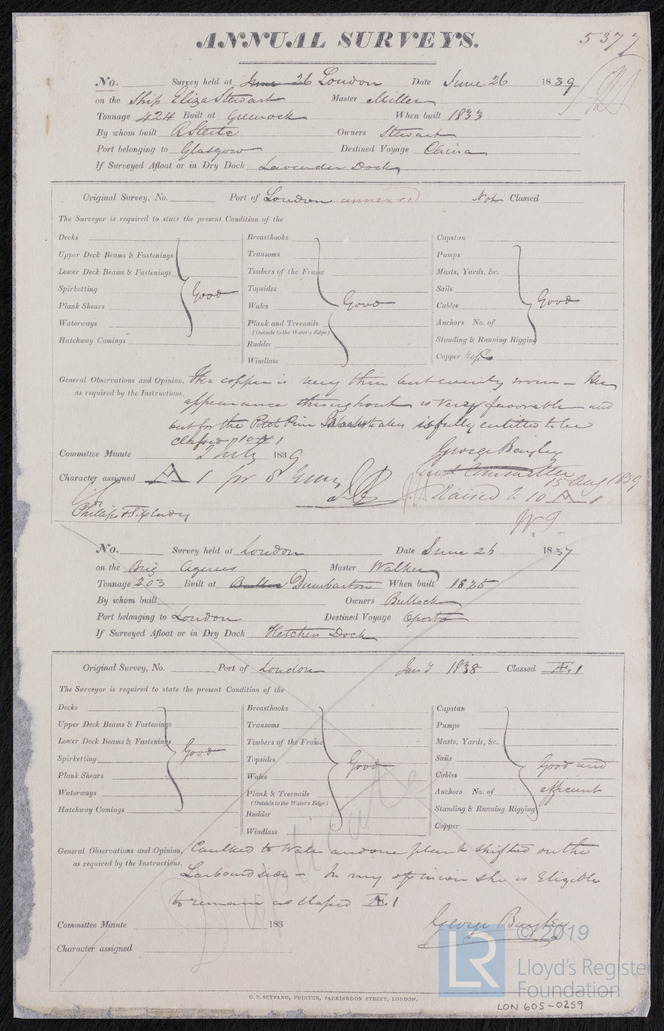 ANNUAL SURVEYS. 5377
No. Survey held at June 26 London Date June 26 1839
on the Ship Eliza Stewart Master Miller
Tonnage 424 Built at Greenock When built 1833
By whom built R Steele Owners Stewart
Port belonging to Glasgow Destined Voyage China
If Surveyed Afloat or in Dry Dock Lavender Dock
Original Survey, No. Port of London annexed Not Classed
The Surveyor is required to state the present Condition of the
Decks Breasthooks Capstan
Upper Deck Beams & Fastenings Transoms Pumps
Lower Deck Beams & Fastenings Timbers of the Frame Masts, Yards, &c.
Spirketting Good Topsides Sails
Plank Shears Wales Good Cables Good
Waterways Plank and Treenails Anchors No. of
(Outside to the Water's Edge)
Hatchway Comings Rudder Standing & Running Rigging
Windlass Copper
General Observations and Opinion, The copper is very thin but evenly worn - Her
as required by the Instructions, appearance throughout is very favorable - and
but for the Pitch Pine is fully entitled to be
classed 10 A 1
Committee Minute July 1839 George Bayley
Character assigned A 1 for 8 Years
Raised to 10 A 1 15 Aug 1839
No. Survey held at London Date June 26 1837
on the Brig Agenes Master Walker
Tonnage 203 Built at Dumbarton When built 1825
By whom built Owners Bullock
Port belonging to London Destined Voyage Oporto
If Surveyed Afloat or in Dry Dock Fletchers Dock
Original Survey, No. Port of London Jany 1838 Classed Æ 1
The Surveyor is required to state the present Condition of the
Decks Breasthooks Capstan
Upper Deck Beams & Fastenings Transoms Pumps
Lower Deck Beams & Fastenings Timbers of the Frame Masts, Yards, &c.
Spirketting Good Topsides Good Sails Good and
Plank Shears Wales Cables
Waterways Plank & Treenails Anchors No. of efficient
(Outside to the Water's Edge)
Hatchway Comings Rudder Standing & Running Rigging
Windlass Copper
Duplicate
General Observations and Opinion, Caulked to Wales and one plank shifted on the
as required by the Instructions, Larboard side - In my opinion she is Eligible
to remain as classed Æ 1
Committee Minute 183 George Bayley
Character assigned
G. F. SEYFANG, PRINTER, FARRINGDON STREET, LONDON.
LR © 2019
Lloyd's Register
Foundation
LON 605-0259